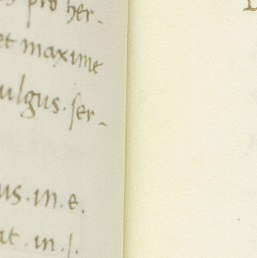 pro her-
et maxime
ulgus. ser-
us. in. e.
at. in. l.